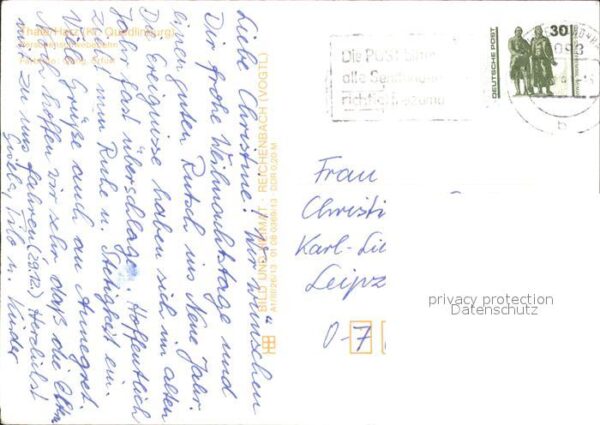 Thale/Harz (Kr. Quedlinburg)
Liebe Christine! Wir wünschen
Dir frohe Weihnachtstage und
einen guten Rutsch ins Neue Jahr.
Die Ereignisse haben sich im alten
Jahr fast überschlagen. Hoffentlich
zieht nun Ruhe u. Stetigkeit ein.
Viele Grüße auch an Annegret.
hoffen wir sehr, daß die
zu uns fahren (29.12.) Herzlichst
u. Kinder
BILD UND HEIMAT · REICHENBACH (VOGTL)
A1/B/26/13 01 08 0369/13 DDR 0,20 M
Die POST bittet
alle Sendungen
richtig
DEUTSCHE POST
30
b
Frau
Christi
Karl-Lie
Leipz
O-7
privacy protection
Datenschutz